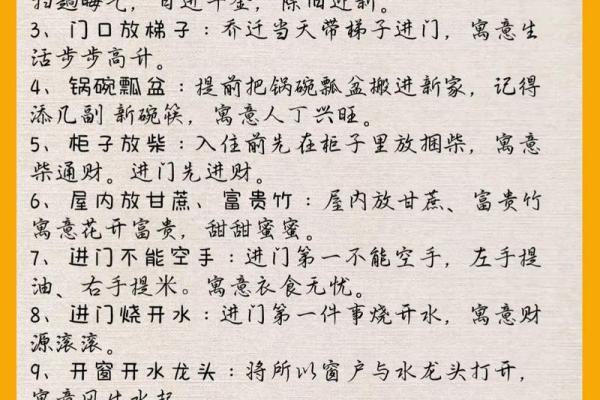 扫趟晦气，日进斗金，除旧迎新。
3、门口放梯子：乔迁当天带梯子进门，寓意生
活步步高升。
4、锅碗瓢盆：提前把锅碗瓢盆搬进新家，记得
添几副 新碗筷，寓意人丁兴旺。
5、柜子放柴：入住前先在柜子里放捆柴，寓意
柴通财。进门先进财。
6、屋内放甘蔗、富贵竹：屋内放甘蔗、富贵竹
寓意花开富贵，甜甜蜜蜜。
7、进门不能空手：进门第一不能空手，左手提
油、右手提米。寓意衣食无忧。
8、进门烧开水：进门第一件事烧开水，寓意财
源滚滚。
9、开窗开水龙头：将所以窗户与水龙头打开，
寓意风生水起